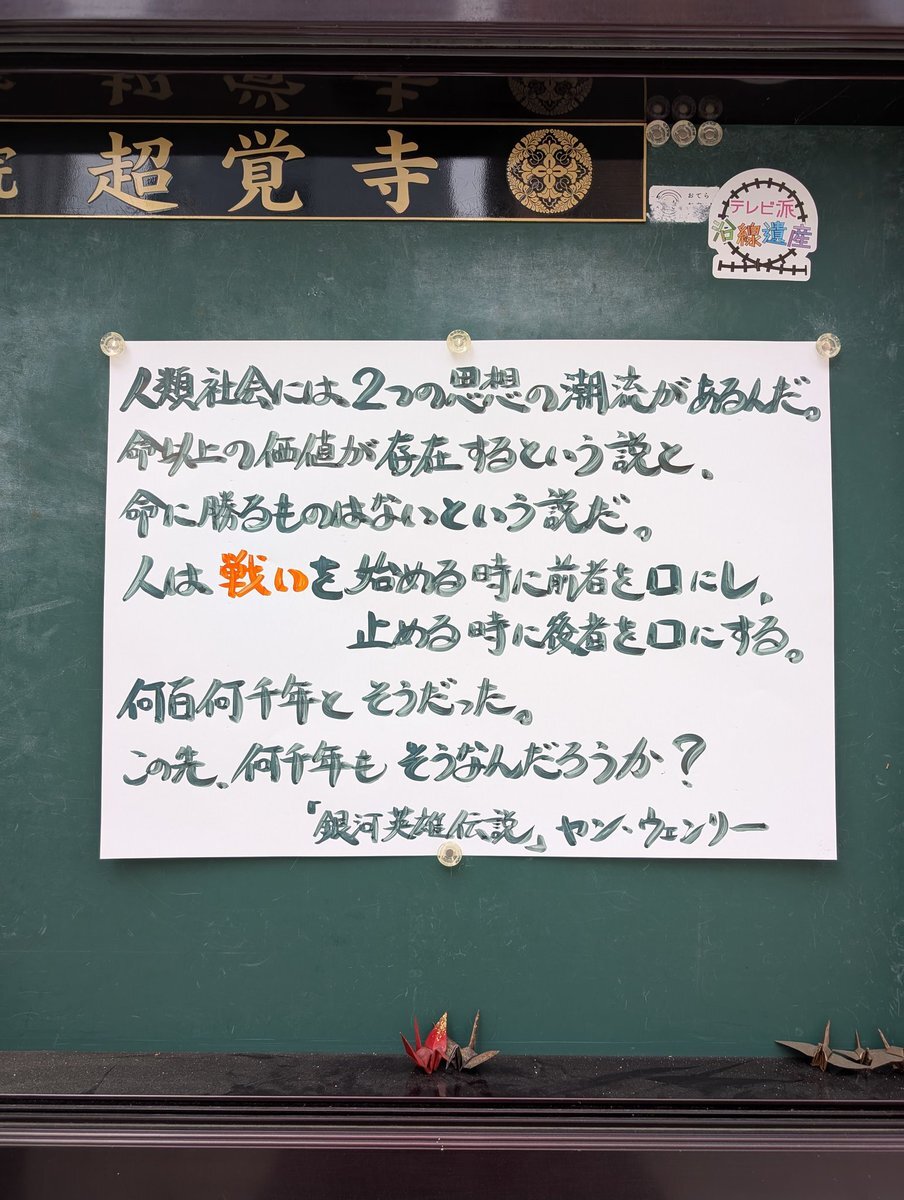 院 超覚寺
おてら
テレビ派
沿線遺産
人類社会には、2つの思想の潮流があるんだ。
命以上の価値が存在するという説と、
命に勝るものはないという説だ。
人は戦いを始める時に前者を口にし、
止める時に後者を口にする。
何百何千年とそうだった。
この先、何千年もそうなんだろうか？
「銀河英雄伝説」ヤン・ウェンリー